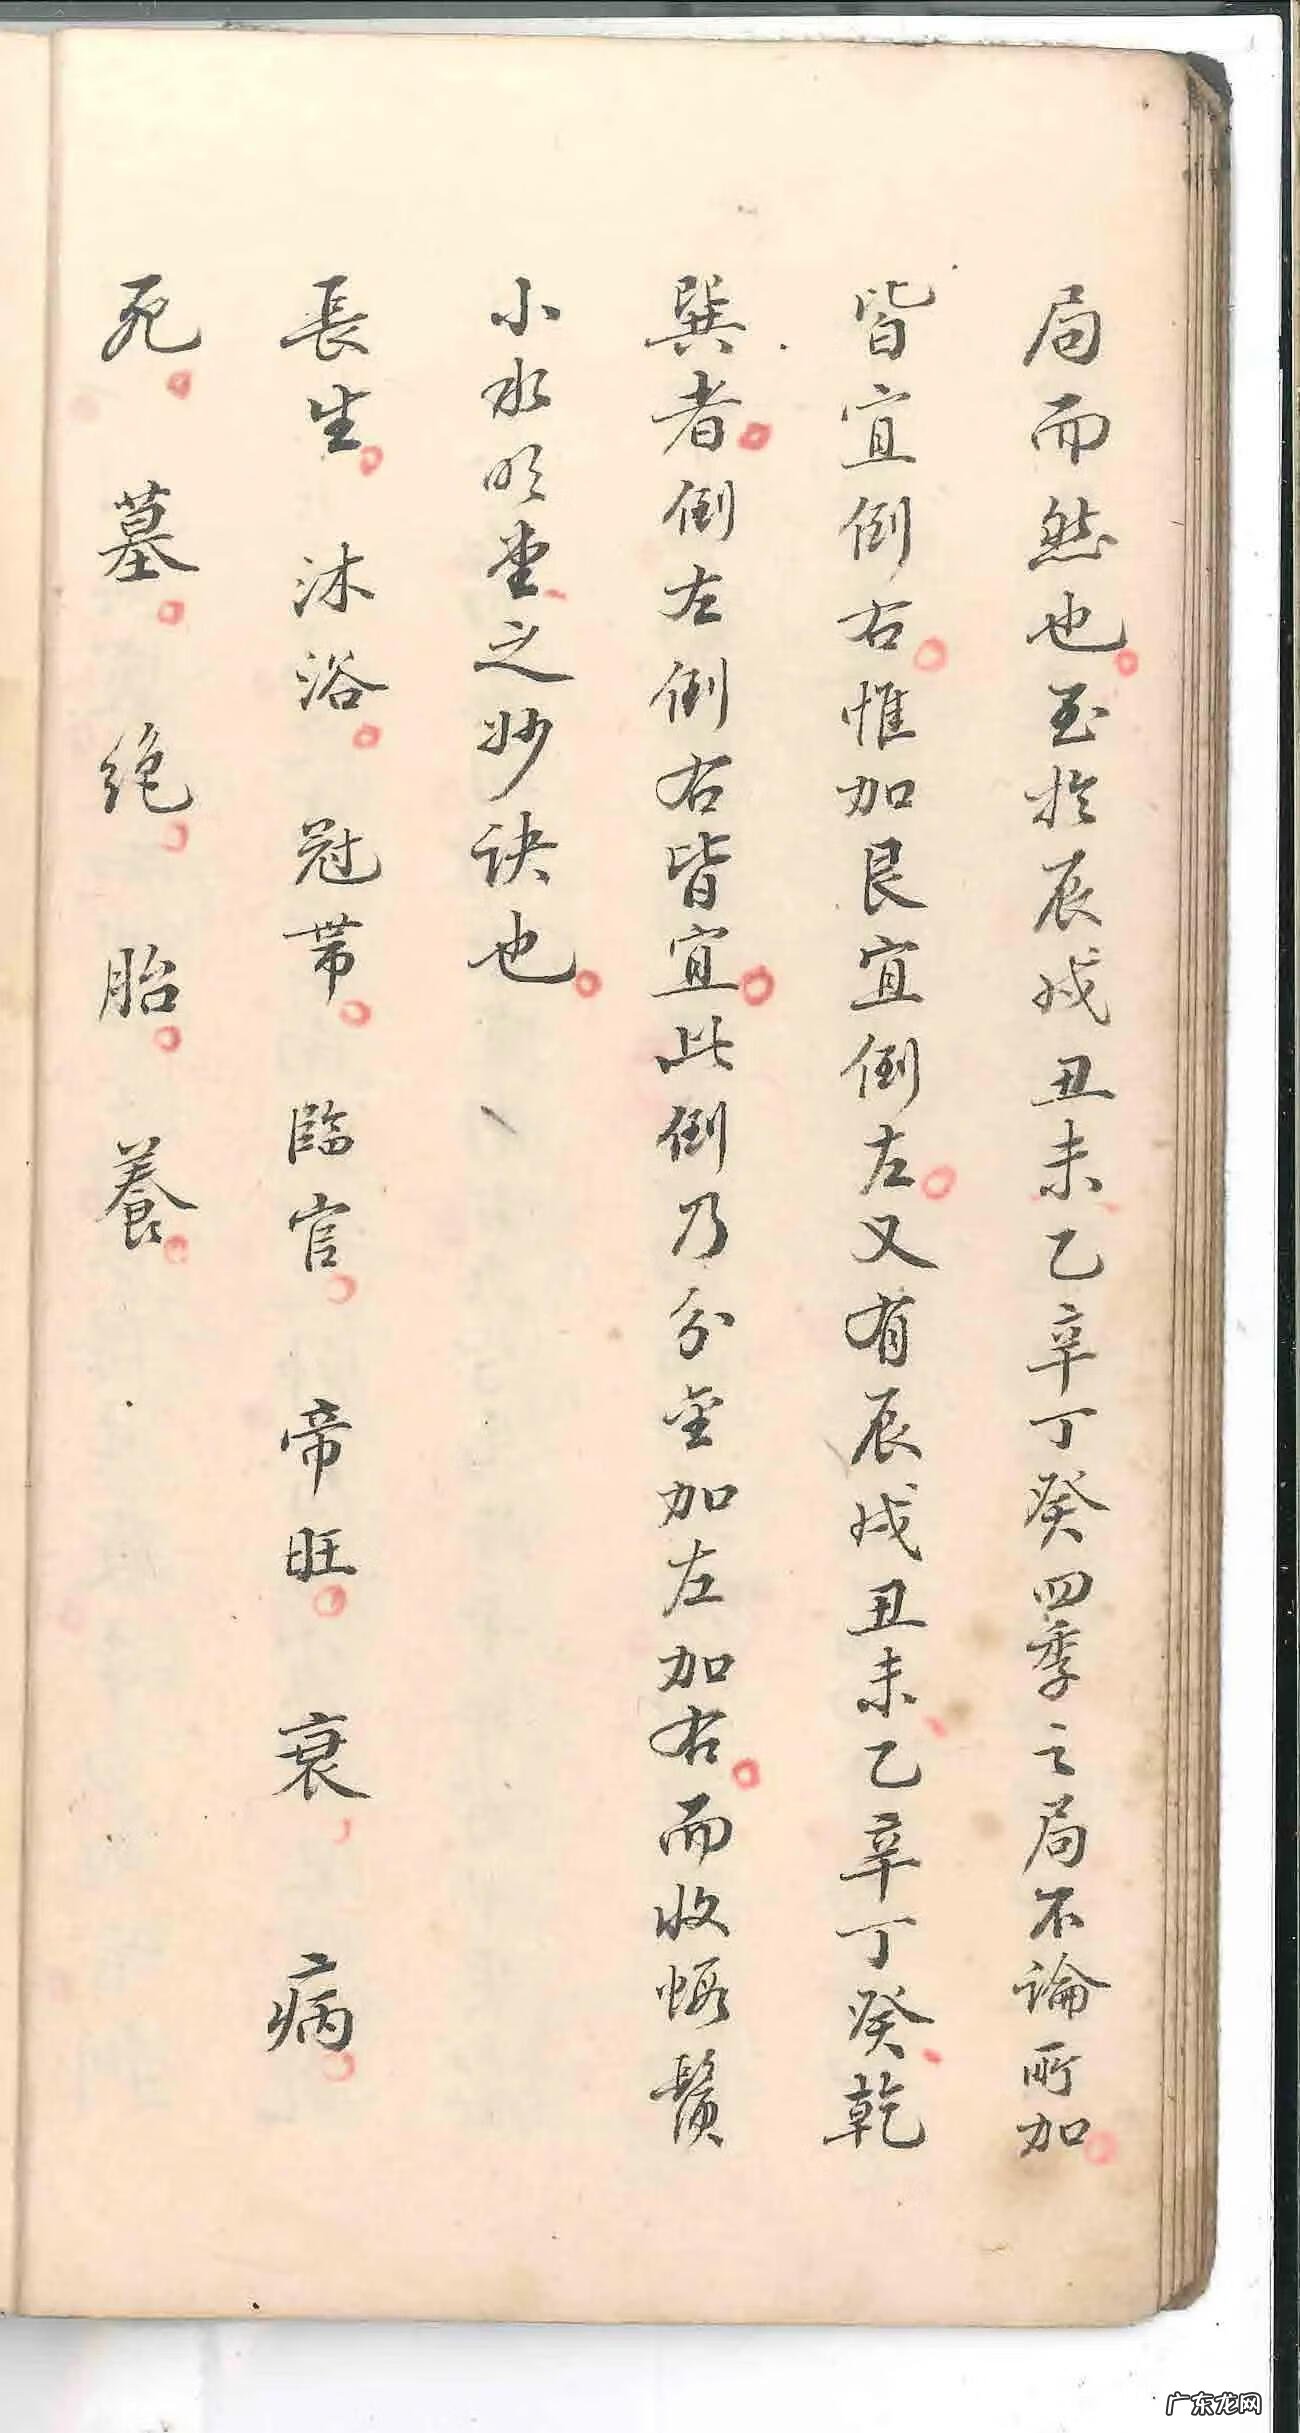 局而然也。至於辰戌丑未、乙辛丁癸四季之局不論所加。
皆宜倒右。惟加艮宜倒左。又有辰戌丑未、乙辛丁癸、乾
巽者。倒左倒右皆宜。此倒乃分金加左加右。而收蝦鬚
小水明堂、之妙訣也。
長生。沐浴。冠帶。臨官。帝旺。衰。病。
死。墓。絶。胎。養。
广东龙网